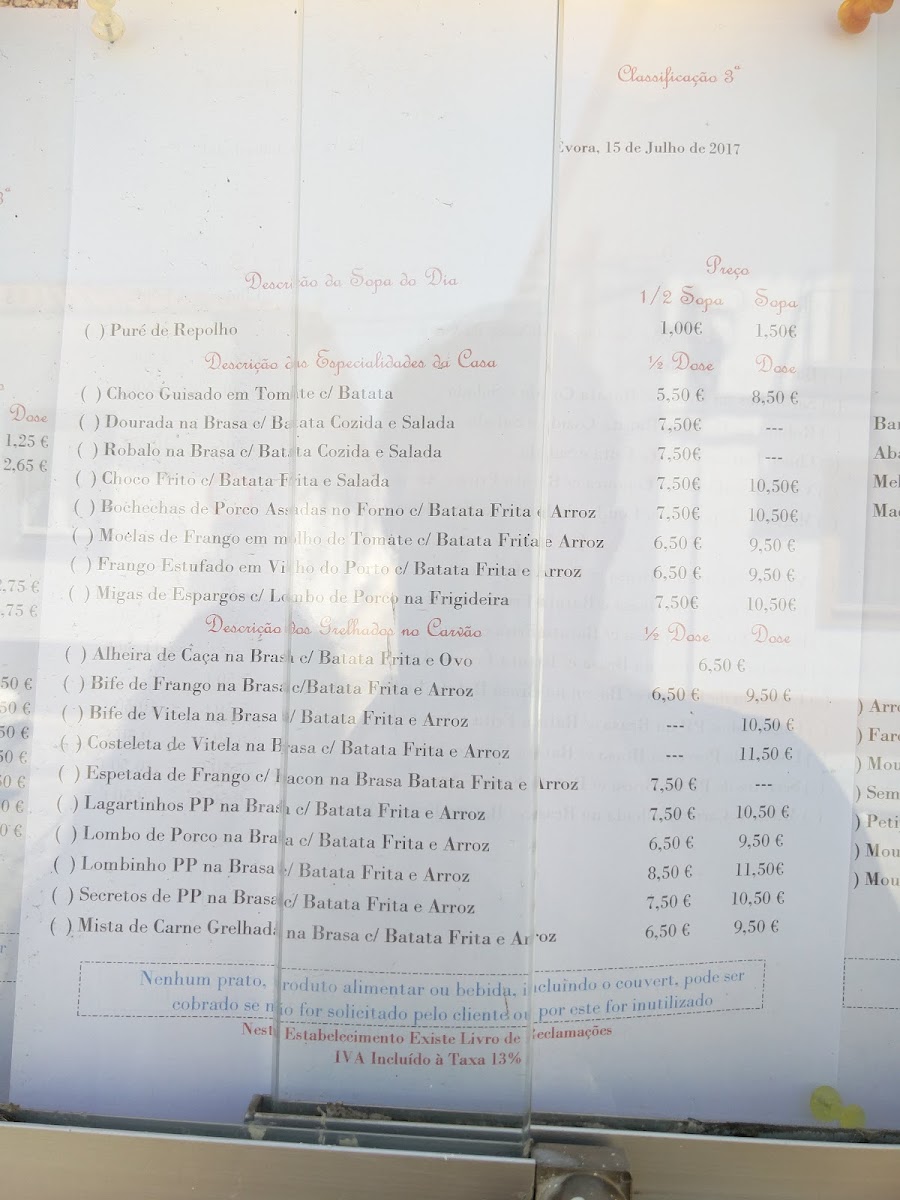 Classificação 3ª
Évora, 15 de Julho de 2017
Preço
Descrição da Sopa do Dia 1/2 Sopa Sopa
( ) Puré de Repolho 1,00€ 1,50€
Descrição das Especialidades da Casa ½ Dose Dose
( ) Choco Guisado em Tomate c/ Batata 5,50 € 8,50 €
( ) Dourada na Brasa c/ Batata Cozida e Salada 7,50€ ---
( ) Robalo na Brasa c/ Batata Cozida e Salada 7,50€ ---
( ) Choco Frito c/ Batata Frita e Salada 7,50€ 10,50€
( ) Bochechas de Porco Assadas no Forno c/ Batata Frita e Arroz 7,50€ 10,50€
( ) Moelas de Frango em molho de Tomate c/ Batata Frita e Arroz 6,50 € 9,50 €
( ) Frango Estufado em Vinho do Porto c/ Batata Frita e Arroz 6,50 € 9,50 €
( ) Migas de Espargos c/ Lombo de Porco na Frigideira 7,50€ 10,50€
Descrição dos Grelhados no Carvão ½ Dose Dose
( ) Alheira de Caça na Brasa c/ Batata Frita e Ovo 6,50 €
( ) Bife de Frango na Brasa c/Batata Frita e Arroz 6,50 € 9,50 €
( ) Bife de Vitela na Brasa c/ Batata Frita e Arroz --- 10,50 €
( ) Costeleta de Vitela na Brasa c/ Batata Frita e Arroz --- 11,50 €
( ) Espetada de Frango c/ Bacon na Brasa Batata Frita e Arroz 7,50 € ---
( ) Lagartinhos PP na Brasa c/ Batata Frita e Arroz 7,50 € 10,50 €
( ) Lombo de Porco na Brasa c/ Batata Frita e Arroz 6,50 € 9,50 €
( ) Lombinho PP na Brasa c/ Batata Frita e Arroz 8,50 € 11,50€
( ) Secretos de PP na Brasa c/ Batata Frita e Arroz 7,50 € 10,50 €
( ) Mista de Carne Grelhada na Brasa c/ Batata Frita e Arroz 6,50 € 9,50 €
Nenhum prato, produto alimentar ou bebida, incluindo o couvert, pode ser
cobrado se não for solicitado pelo cliente ou por este for inutilizado
Neste Estabelecimento Existe Livro de Reclamações
IVA Incluído à Taxa 13%
Dose
1,25 €
2,65 €